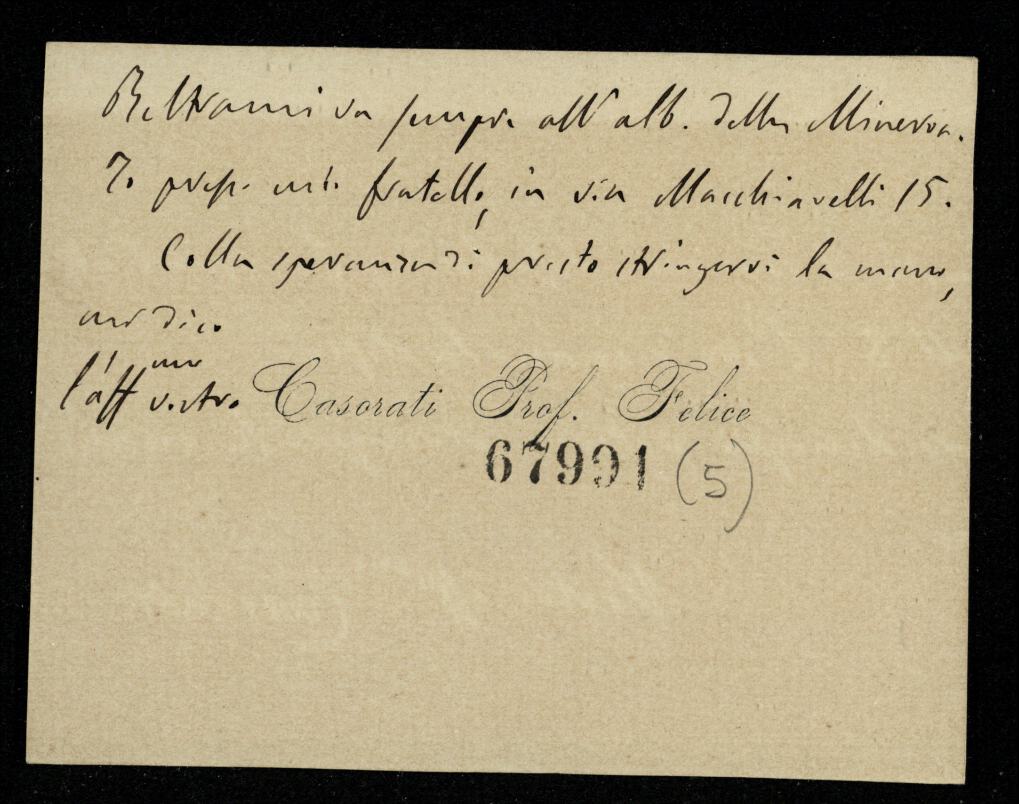 Beltrami va sempre all'alb. della Minerva.
Io presso mio fratello, in via Macchiavelli 15.
Colla speranza di presto stringervi la mano,
mi dico
l'aff.mo vostro Casorati Prof. Felice
67991 (5)